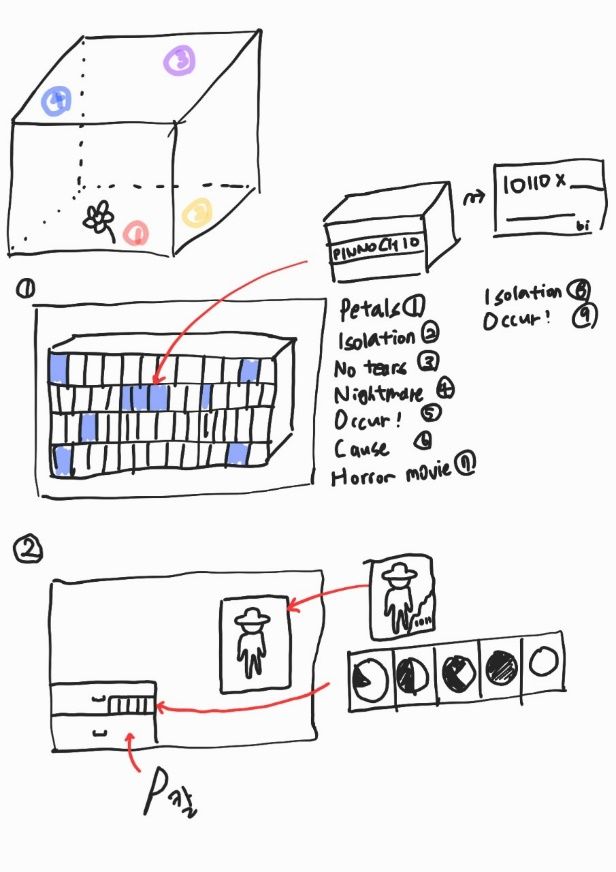 4
3
1
2
PINNOCHIO
10110 x
bi
①
Petals ①
Isolation ②
No tears ③
Nightmare ④
Occur! ⑤
Cause ⑥
Horror movie ⑦
Isolation ⑧
Occur! ⑨
②
P칼